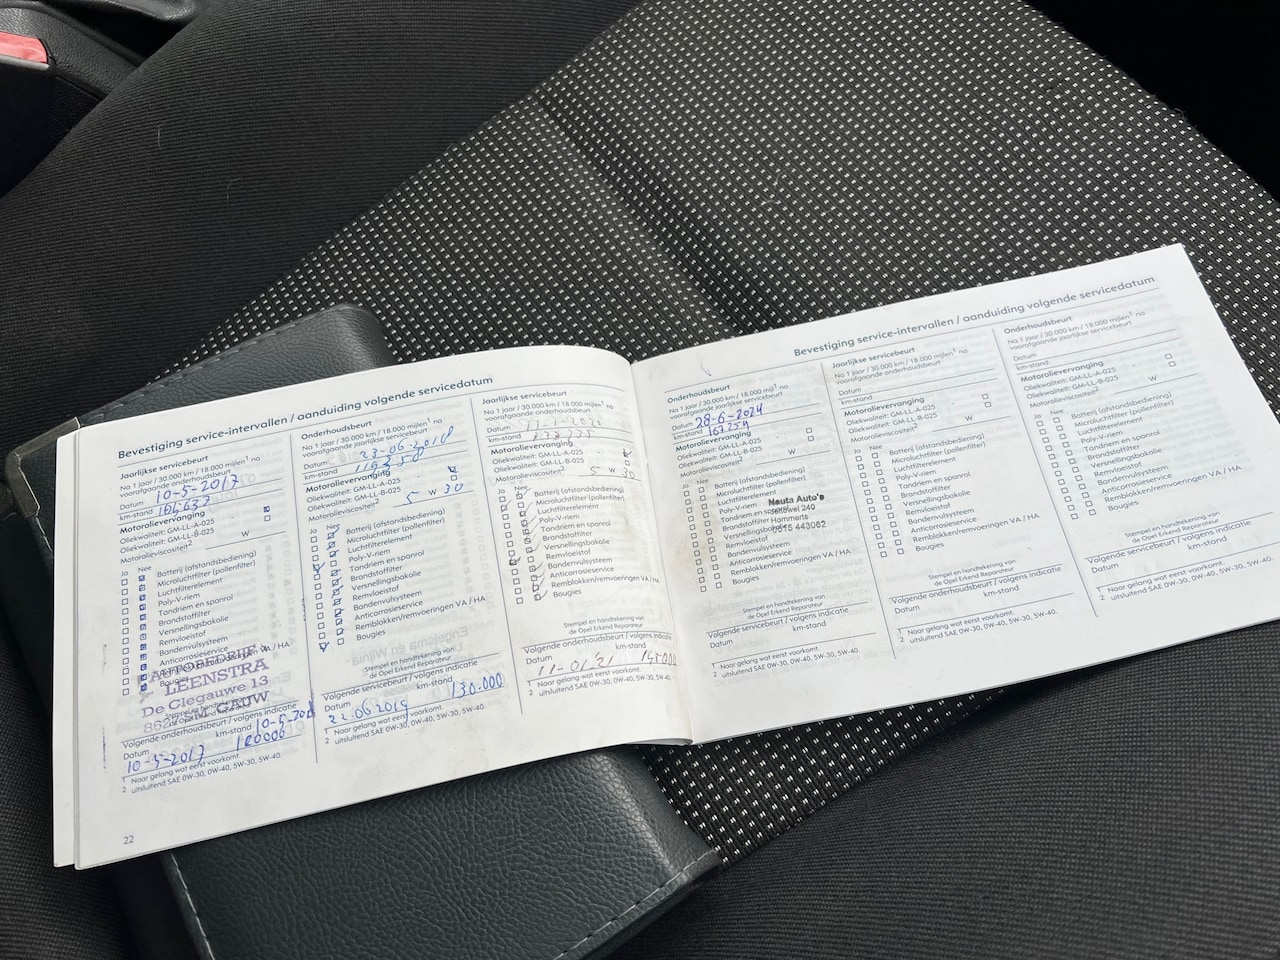 Bevestiging service-intervallen / aanduiding volgende servicedatum
Jaarlijkse servicebeurt
Na 1 jaar / 30.000 km / 18.000 mijlen¹ na
voorafgaande onderhoudsbeurt
Datum 10-5-2017
km-stand
Motorolievervanging
Oliekwaliteit: GM-LL-A-025
Oliekwaliteit: GM-LL-B-025
Motorolieviscositeit² W
Ja Nee
Batterij (afstandsbediening)
Microluchtfilter (pollenfilter)
Luchtfilterelement
Poly-V-riem
Tandriem en spanrol
Brandstoffilter
Versnellingsbakolie
Remvloeistof
Bandenvulsysteem
Anticorrosieservice
Remblokken/remvoeringen VA / HA
Bougies
AUTOBEDRIJF
LEENSTRA
De Clegauwe 13
GAUW
Stempel en handtekening van
de Opel Erkend Reparateur
Volgende onderhoudsbeurt / volgens indicatie
Datum km-stand
10-5-2017
¹ Naar gelang wat eerst voorkomt.
² uitsluitend SAE 0W-30, 0W-40, 5W-30, 5W-40.
22
Onderhoudsbeurt
Na 1 jaar / 30.000 km / 18.000 mijlen¹ na
voorafgaande jaarlijkse servicebeurt
Datum 23-06-2018
km-stand
Motorolievervanging
Oliekwaliteit: GM-LL-A-025
Oliekwaliteit: GM-LL-B-025
Motorolieviscositeit² 5 W 30
Ja Nee
Batterij (afstandsbediening)
Microluchtfilter (pollenfilter)
Luchtfilterelement
Poly-V-riem
Tandriem en spanrol
Brandstoffilter
Versnellingsbakolie
Remvloeistof
Bandenvulsysteem
Anticorrosieservice
Remblokken/remvoeringen VA / HA
Bougies
Stempel en handtekening van
de Opel Erkend Reparateur
Volgende servicebeurt / volgens indicatie
Datum km-stand
22.06 2019 130.000
¹ Naar gelang wat eerst voorkomt.
² uitsluitend SAE 0W-30, 0W-40, 5W-30, 5W-40.
Jaarlijkse servicebeurt
Na 1 jaar / 30.000 km / 18.000 mijlen¹ na
voorafgaande onderhoudsbeurt
Datum
km-stand
Motorolievervanging
Oliekwaliteit: GM-LL-A-025
Oliekwaliteit: GM-LL-B-025
Motorolieviscositeit² 5 W 30
Ja Nee
Batterij (afstandsbediening)
Microluchtfilter (pollenfilter)
Luchtfilterelement
Poly-V-riem
Tandriem en spanrol
Brandstoffilter
Versnellingsbakolie
Remvloeistof
Bandenvulsysteem
Anticorrosieservice
Remblokken/remvoeringen VA / HA
Bougies
Stempel en handtekening van
de Opel Erkend Reparateur
Volgende onderhoudsbeurt / volgens indicatie
Datum km-stand
¹ Naar gelang wat eerst voorkomt.
² uitsluitend SAE 0W-30, 0W-40, 5W-30, 5W-40.
Bevestiging service-intervallen / aanduiding volgende servicedatum
Onderhoudsbeurt
Na 1 jaar / 30.000 km / 18.000 mijl¹ na
voorafgaande jaarlijkse servicebeurt
Datum 28-6-2024
km-stand 167254
Motorolievervanging
Oliekwaliteit: GM-LL-A-025
Oliekwaliteit: GM-LL-B-025
Motorolieviscositeit² W
Ja Nee
Batterij (afstandsbediening)
Microluchtfilter (pollenfilter)
Luchtfilterelement
Poly-V-riem
Tandriem en spanrol
Brandstoffilter
Versnellingsbakolie
Remvloeistof
Bandenvulsysteem
Anticorrosieservice
Remblokken/remvoeringen VA / HA
Bougies
Nauta Auto's
240
Hommerts
0515 443082
Stempel en handtekening van
de Opel Erkend Reparateur
Volgende servicebeurt / volgens indicatie
Datum km-stand
¹ Naar gelang wat eerst voorkomt.
² uitsluitend SAE 0W-30, 0W-40, 5W-30, 5W-40.
Jaarlijkse servicebeurt
Na 1 jaar / 30.000 km / 18.000 mijlen¹ na
voorafgaande onderhoudsbeurt
Datum
km-stand
Motorolievervanging
Oliekwaliteit: GM-LL-A-025
Oliekwaliteit: GM-LL-B-025
Motorolieviscositeit² W
Ja Nee
Batterij (afstandsbediening)
Microluchtfilter (pollenfilter)
Luchtfilterelement
Poly-V-riem
Tandriem en spanrol
Brandstoffilter
Versnellingsbakolie
Remvloeistof
Bandenvulsysteem
Anticorrosieservice
Remblokken/remvoeringen VA / HA
Bougies
Stempel en handtekening van
de Opel Erkend Reparateur
Volgende onderhoudsbeurt / volgens indicatie
Datum km-stand
¹ Naar gelang wat eerst voorkomt.
² uitsluitend SAE 0W-30, 0W-40, 5W-30, 5W-40.
Onderhoudsbeurt
Na 1 jaar / 30.000 km / 18.000 mijlen¹ na
voorafgaande jaarlijkse servicebeurt
Datum
km-stand
Motorolievervanging
Oliekwaliteit: GM-LL-A-025
Oliekwaliteit: GM-LL-B-025
Motorolieviscositeit² W
Ja Nee
Batterij (afstandsbediening)
Microluchtfilter (pollenfilter)
Luchtfilterelement
Poly-V-riem
Tandriem en spanrol
Brandstoffilter
Versnellingsbakolie
Remvloeistof
Bandenvulsysteem
Anticorrosieservice
Remblokken/remvoeringen VA / HA
Bougies
Stempel en handtekening van
de Opel Erkend Reparateur
Volgende servicebeurt / volgens indicatie
Datum km-stand
¹ Naar gelang wat eerst voorkomt.
² uitsluitend SAE 0W-30, 0W-40, 5W-30, 5W-40.